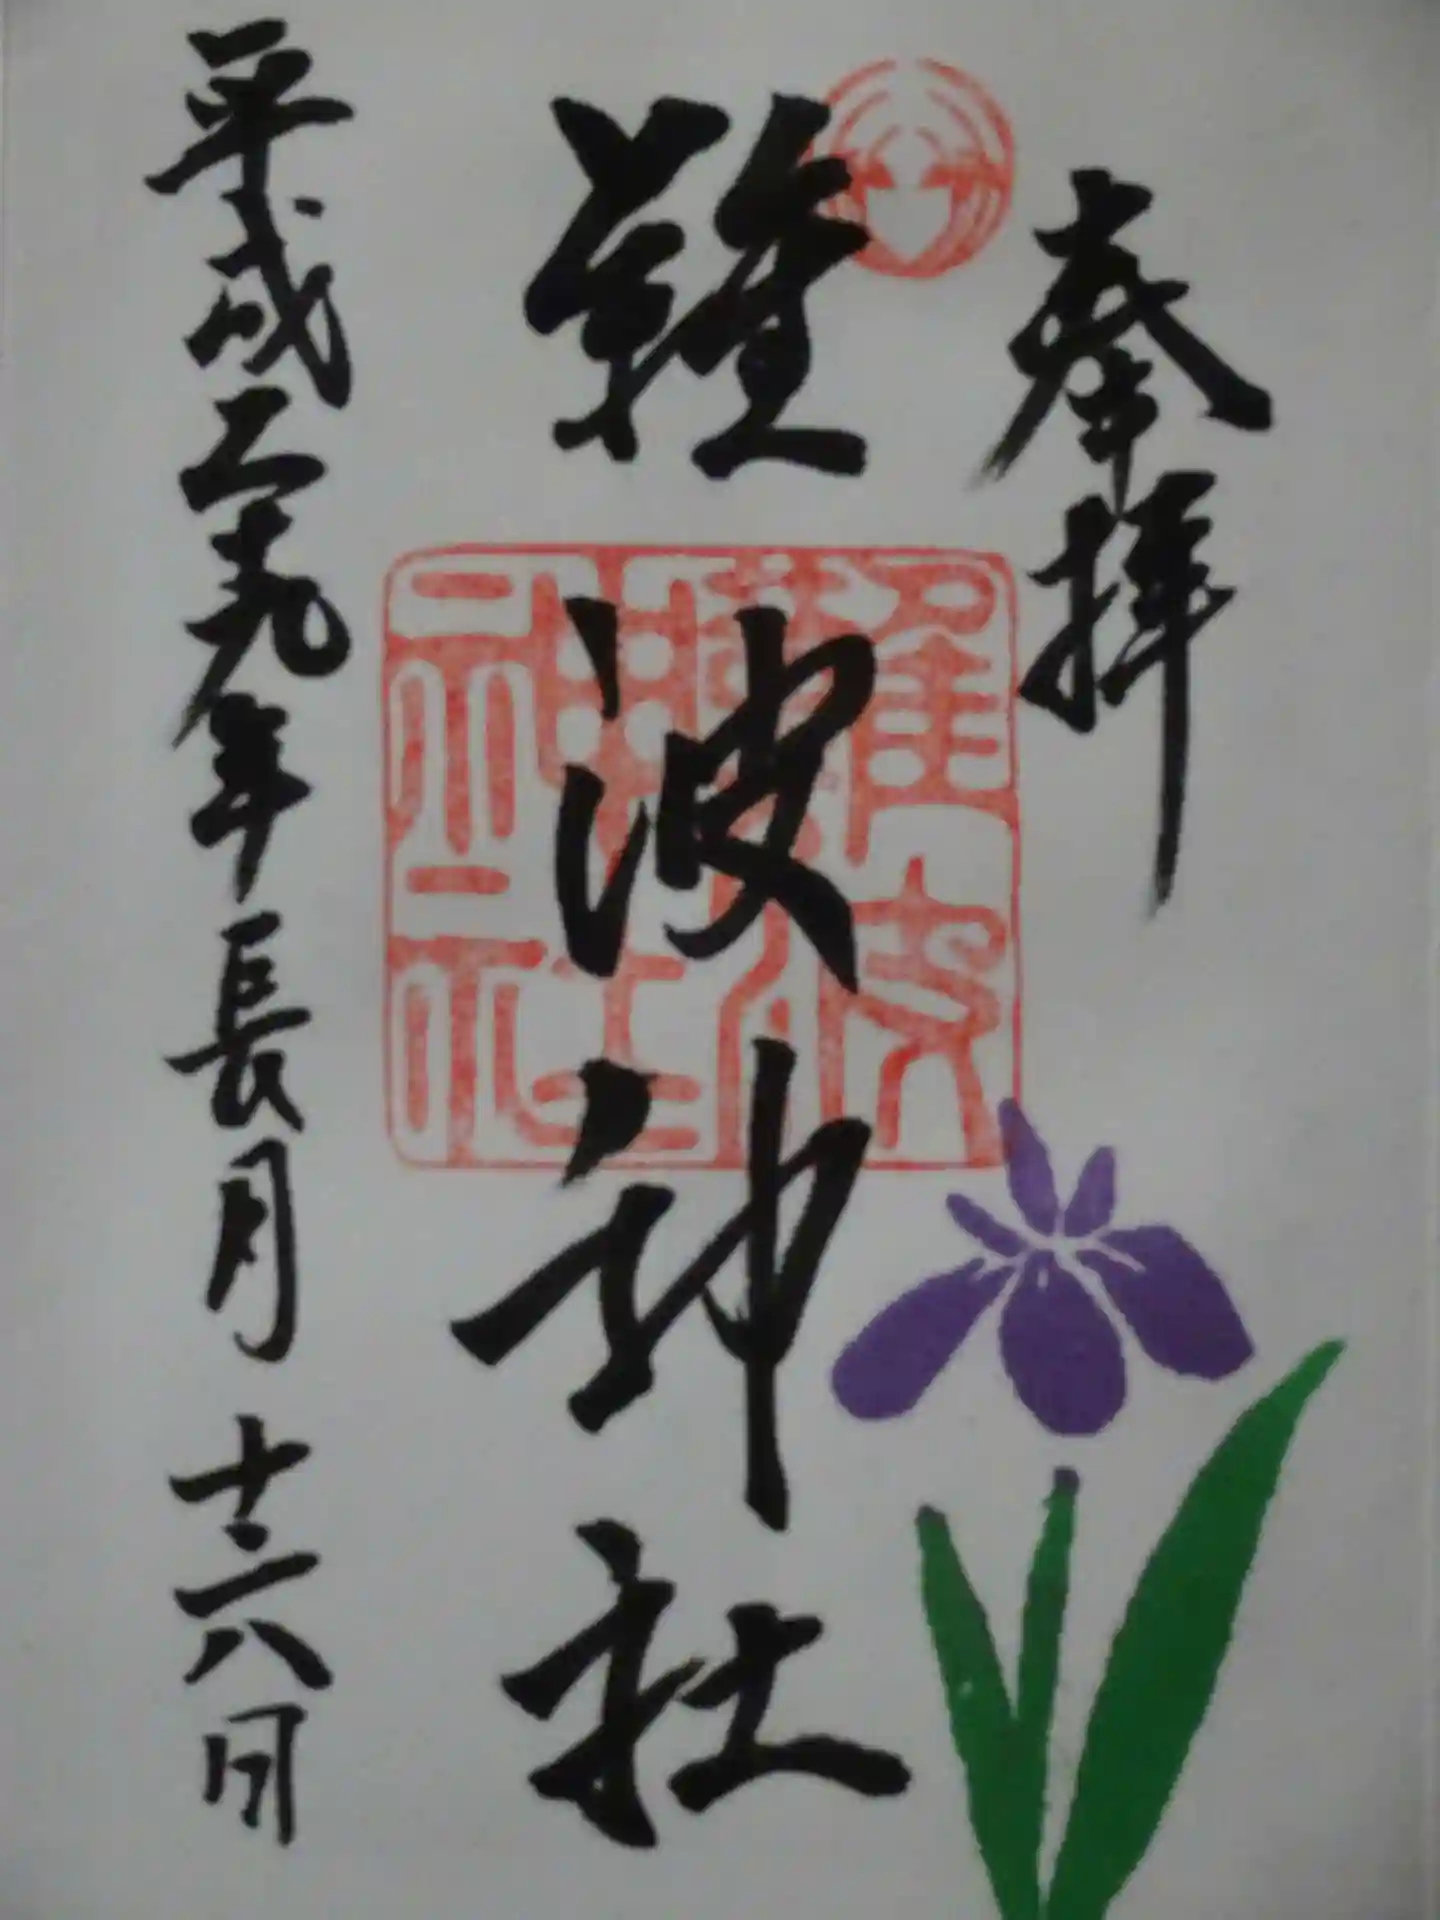 奉拝
難波神社
難波
神社
平成二十九年長月十六日